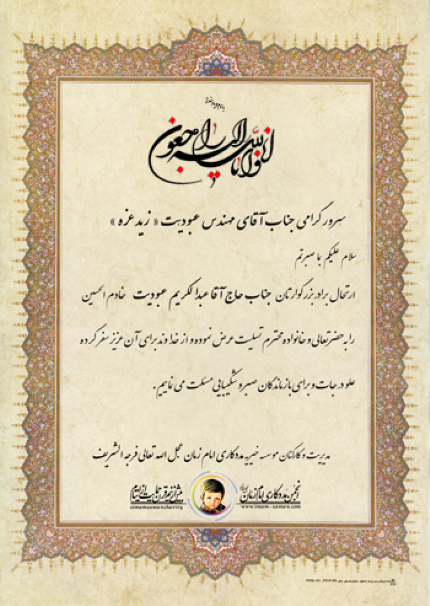 انا لله و انا الیه راجعون
سرور گرامی جناب آقای مهندس عبودیت « زید عزه »
سلام علیکم بما صبرتم
ارتحال برادر بزرگوارتان جناب حاج آقا عبدالکریم عبودیت خادم الحسین
را به حضرتعالی و خانواده محترم تسلیت عرض نموده و از خداوند برای آن عزیز سفر کرده
علو درجات و برای بازماندگان صبر و شکیبایی مسئلت می نماییم.
مدیریت و کارکنان موسسه خیریه مددکاری امام زمان عجل الله تعالی فرجه الشریف
انجمن مددکاری امام زمان
www.imam-zaman.com
@imamzamancharity